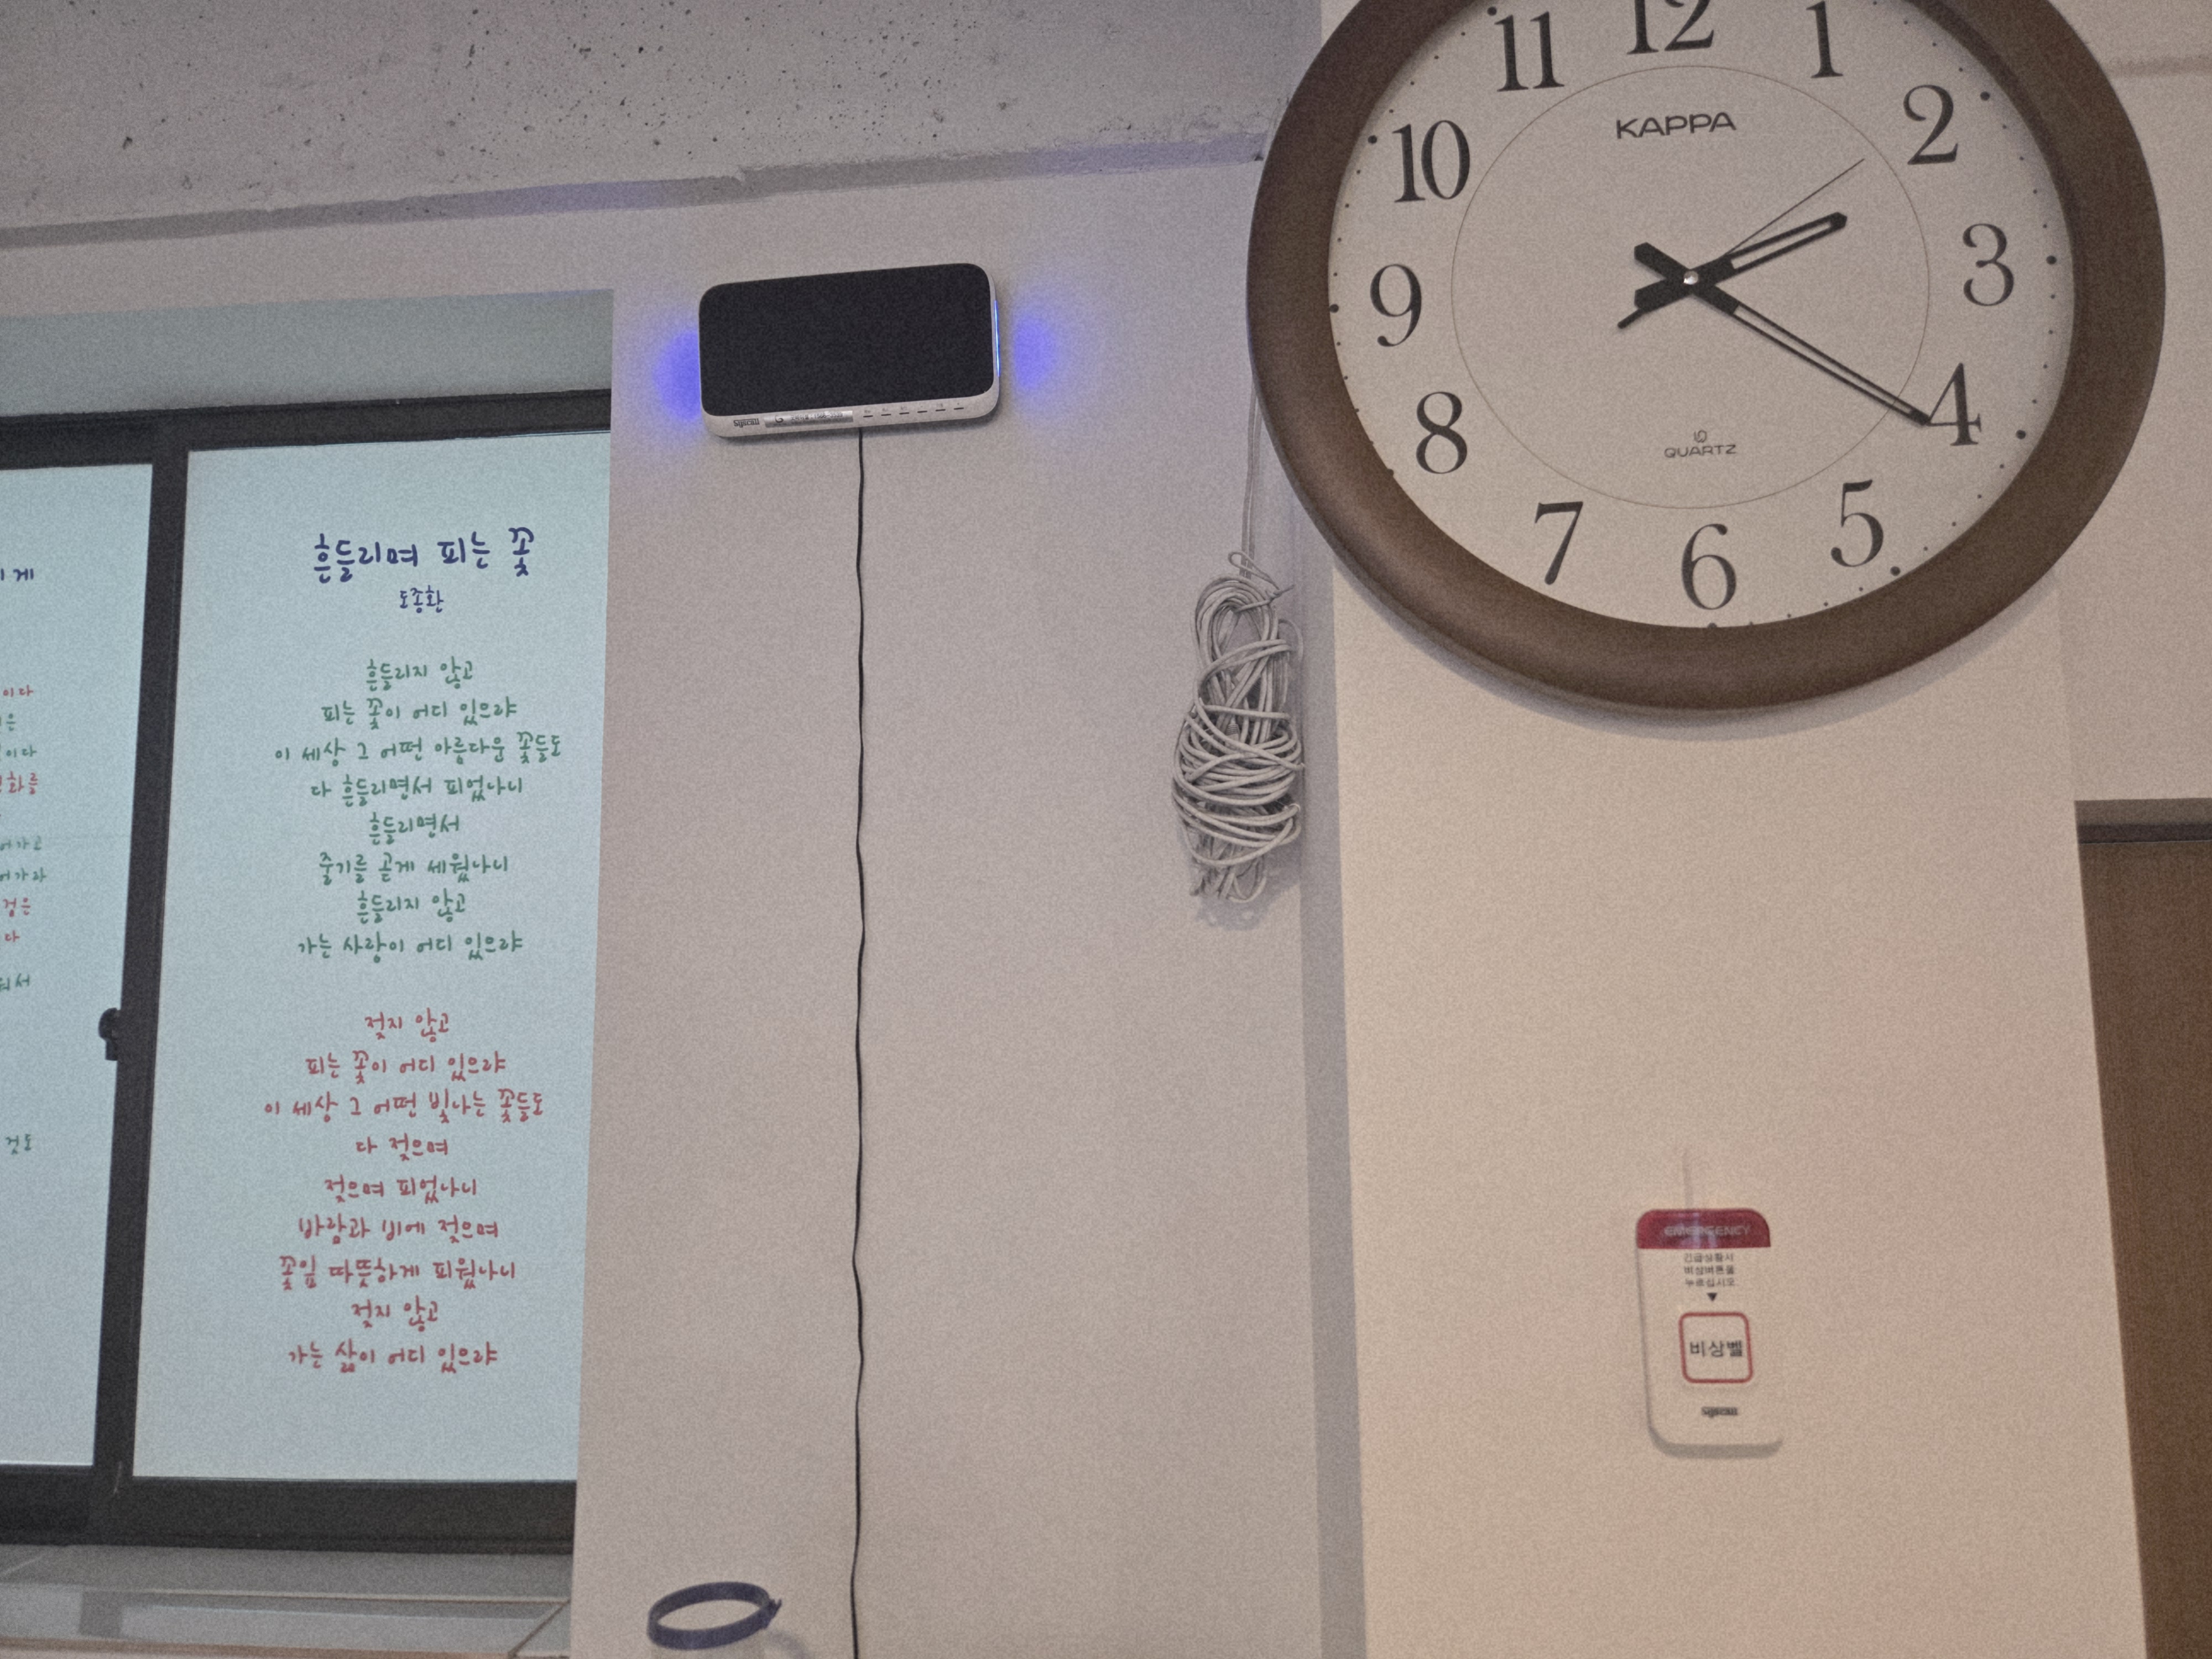 게
이다
은
이다
화를
어가고
어가라
검은
다
워서
것도
흔들리며 피는 꽃
도종환
흔들리지 않고
피는 꽃이 어디 있으랴
이 세상 그 어떤 아름다운 꽃들도
다 흔들리면서 피었나니
흔들리면서
줄기를 곧게 세웠나니
흔들리지 않고
가는 사랑이 어디 있으랴
젖지 않고
피는 꽃이 어디 있으랴
이 세상 그 어떤 빛나는 꽃들도
다 젖으며
젖으며 피었나니
바람과 비에 젖으며
꽃잎 따뜻하게 피웠나니
젖지 않고
가는 삶이 어디 있으랴
Syscall
11 12 1
10 2
9 3
8 4
7 6 5
KAPPA
QUARTZ
EMERGENCY
긴급상황시
비상버튼을
누르십시오
비상벨
Syscall